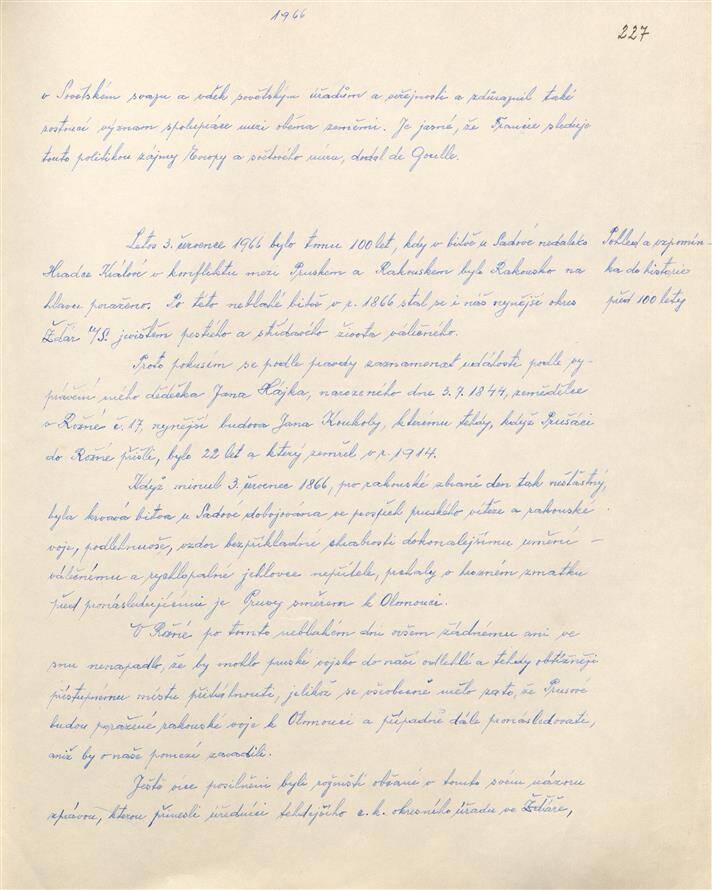 1966
227
v Sovětském svazu a vděk sovětským úřadům a veřejnosti a zdůraznil také
rostoucí význam spolupráce mezi oběma zeměmi. Je jasné, že Francie sleduje
touto politikou zájmy Evropy a světového míru, dodal de Gaulle.
Letos 3. července 1966 bylo tomu 100 let, kdy v bitvě u Sadové nedaleko
Pohled a vzpomín-
Hradce Králové v konfliktu mezi Pruskem a Rakouskem bylo Rakousko na
ka do historie
hlavu poraženo. Po této neblahé bitvě v r. 1866 stal se i náš nynější okres
před 100 lety
Žďár n/S. jevištěm pestrého a střídavého života válečného.
Proto pokusím se podle pravdy zaznamenat události podle vy-
právění mého dědečka Jana Hájka, narozeného dne 3.7.1844, zemědělce
v Rožné č. 17, nynější budova Jana Koukoly, kterému tehdy, když Prušáci
do Rožné přišli, bylo 22 let a který zemřel v r. 1914.
Když minul 3. červenec 1866, pro rakouské zbraně den tak nešťastný,
byla krvavá bitva u Sadové dobojována ve prospěch pruského vítěze a rakouské
voje, podlehnuvše, vzdor bezpříkladné chrabrosti dokonalejšímu umění
válečnému a rychlopalné jehlovce nepřítele, prchaly v hrozném zmatku
před pronásledujícími je Prusy směrem k Olomouci.
V Rožné po tomto neblahém dni ovšem žádnému ani ve
snu nenapadlo, že by mohlo pruské vojsko do naší odlehlé a tehdy obtížněji
přístupnému místu přitrhnouti, jelikož se všeobecně mělo za to, že Prusové
budou poražené rakouské voje k Olomouci a případně dále pronásledovati,
aniž by o naše pomezí zavadili.
Ještě více posilněni byli roženští občané v tomto svém názoru
zprávou, kterou přinesli úředníci tehdejšího c.k. okresního úřadu ve Žďáře,